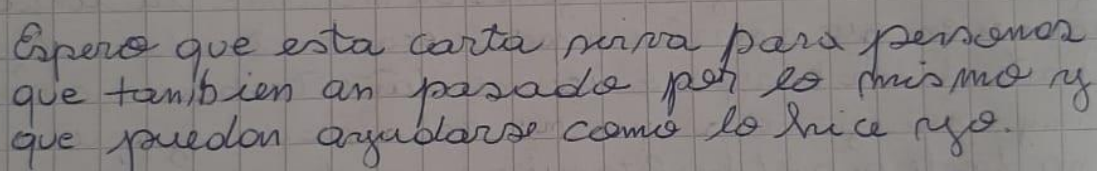 Espero que esta carta sirva para personas
que tanbien an pasado por lo mismo y
que puedan ayudarse como lo hice yo.